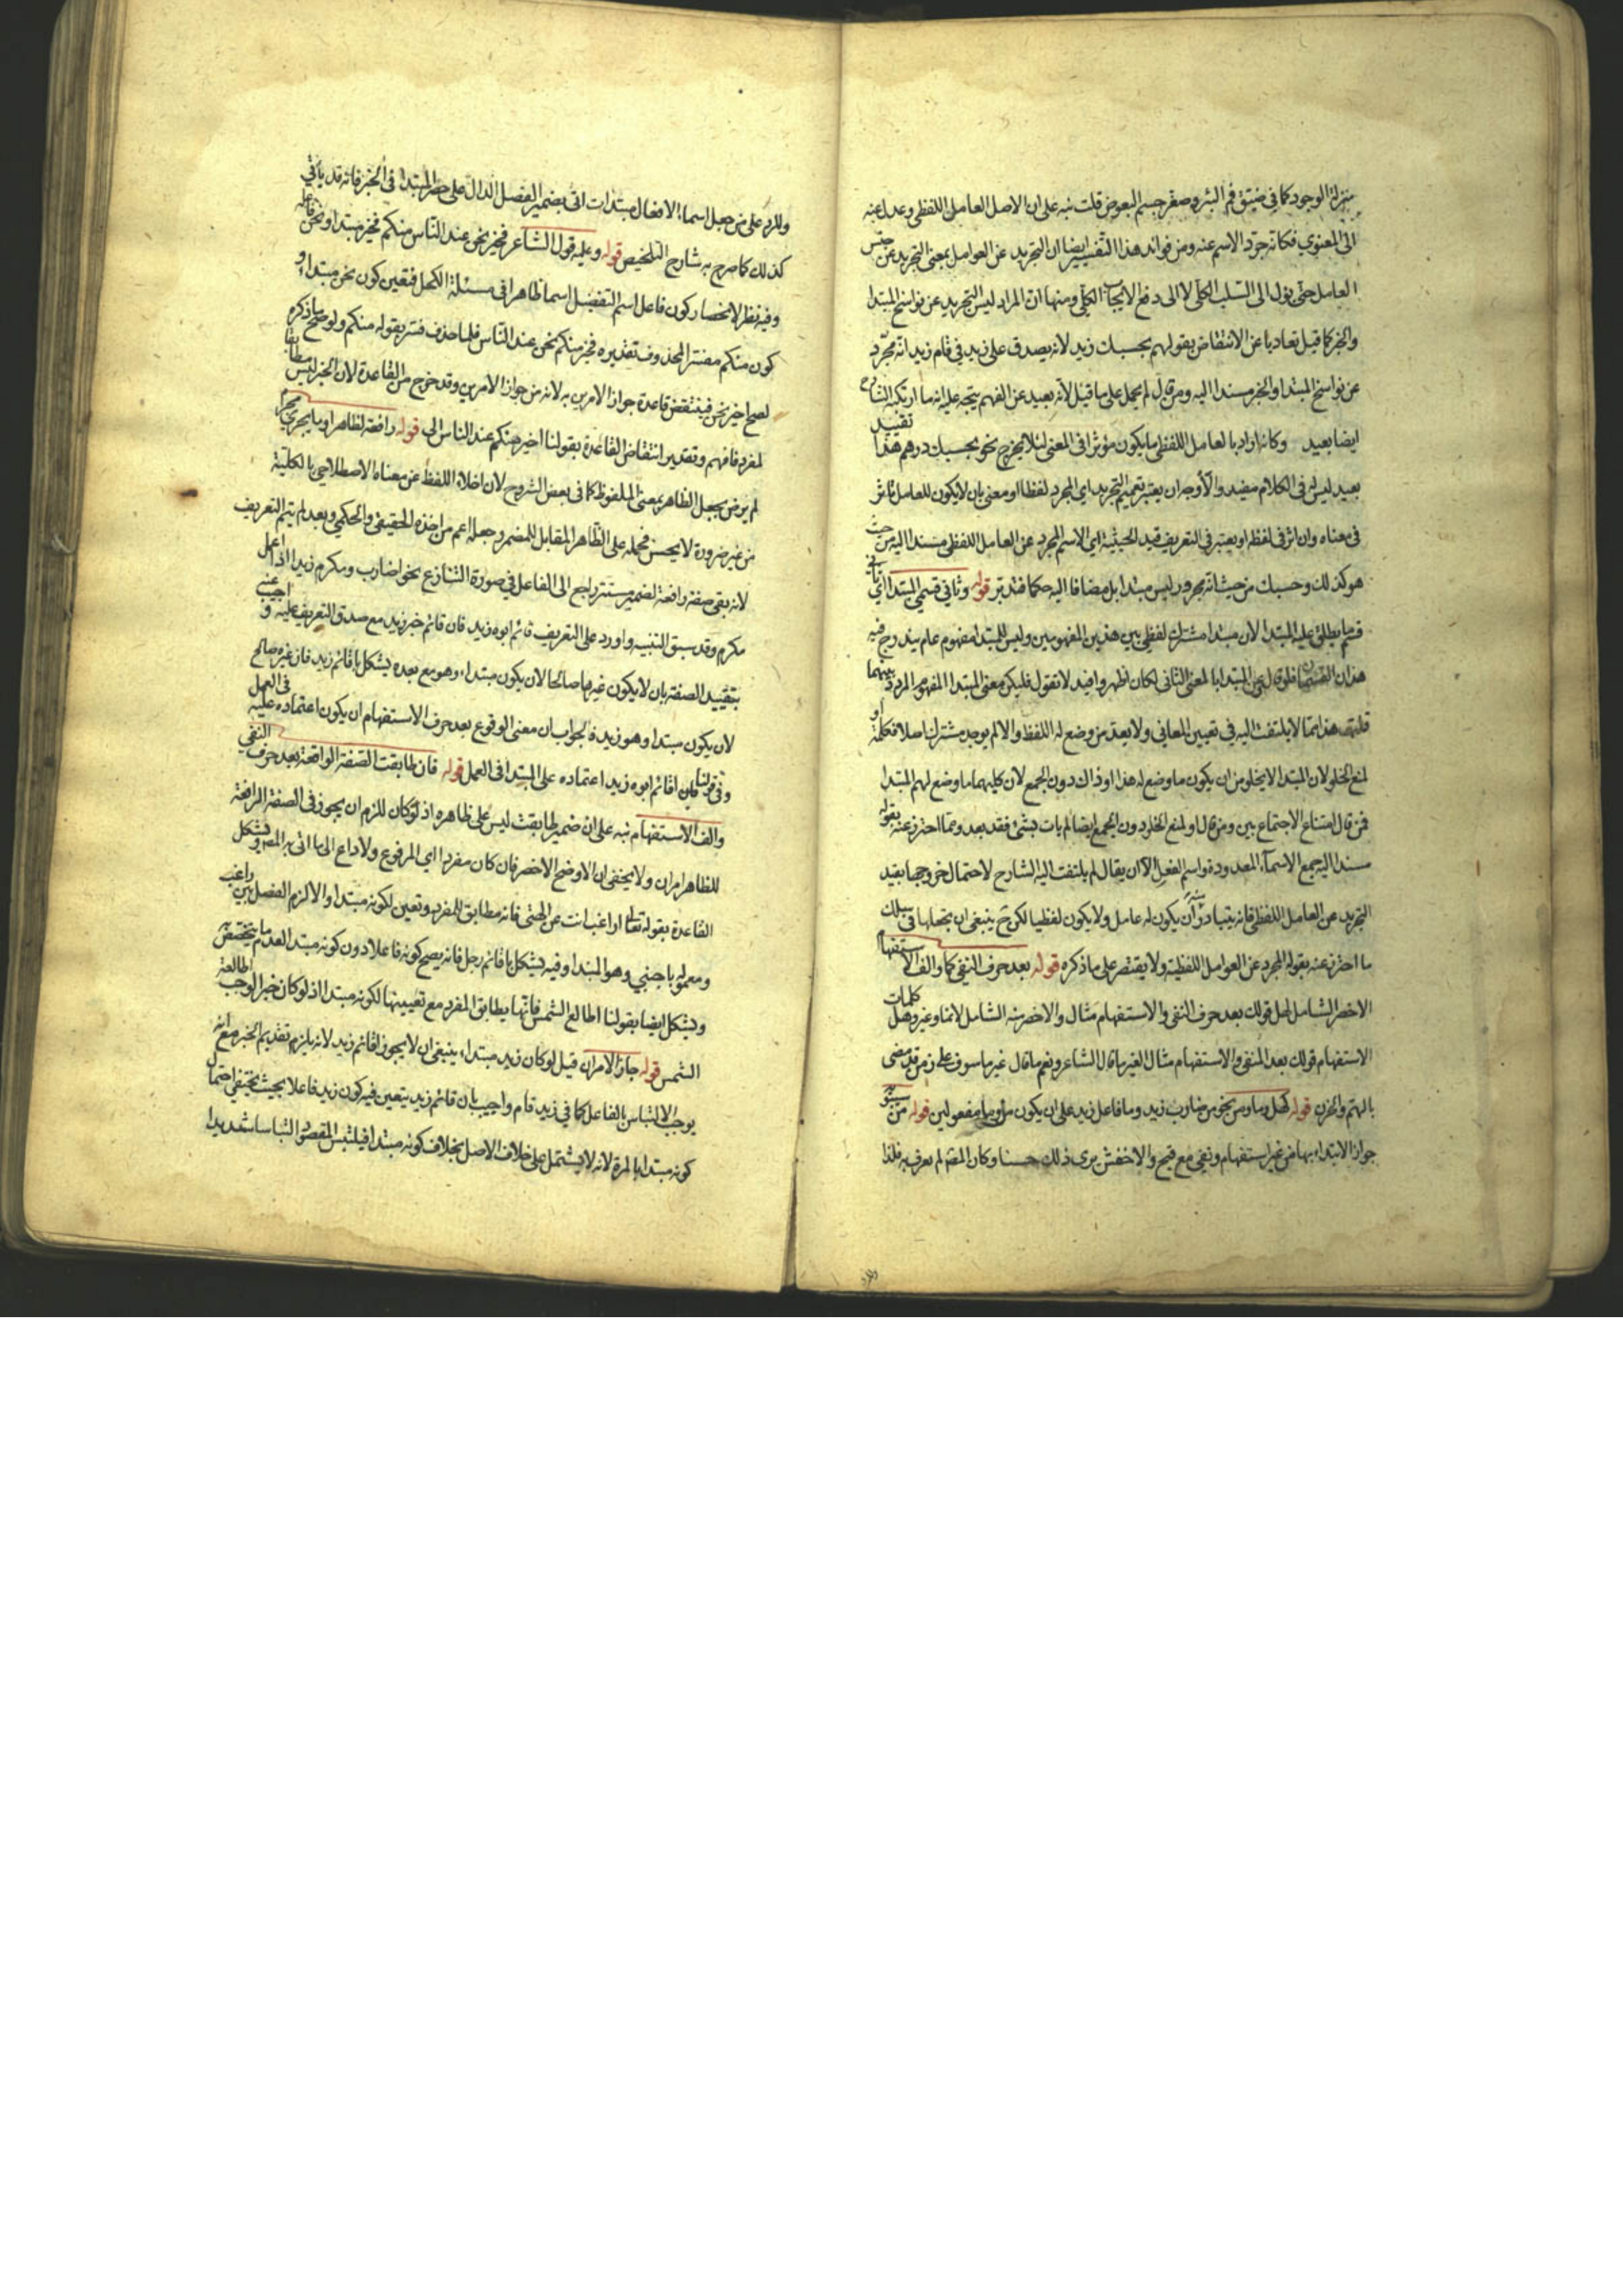 منزلة الوجود كما في ضيق فم البئر وصغر جسم البعوض قلت نبه على ان الاصل العامل اللفظي وعدل عنه
الى المعنوي فكانه جرد الاسم عنه ومن فوائد هذا التفسير ايضا ان التجريد عن العوامل بمعنى التجريد عن جنس
العامل حتى يؤل الى السلب الكلي لا الى دفع الايجاب الكلي ومنها ان المراد ليس التجريد عن نواسخ المبتدا
والخبر كما قيل تفاديا عن الانتقاض بقولهم بحسبك زيد لانه يصدق على زيد في قام زيد انه مجرد
عن نواسخ المبتدا والخبر مسندا اليه ومن قال لم يحمل على ما قيل لانه بعيد عن الفهم يتجه عليه انه ما ارتكبه الشارح
ايضا بعيد وكانه اراد بالعامل اللفظي ما يكون مؤثرا في المعنى لئلا يخرج نحو بحسبك درهم هذا تقييد
بعيد ليس في الكلام مفيده والاوجه ان يعتبر تعميم التجريد اي المجرد لفظا او معنى بان لا يكون للعامل تاثر
في معناه وان اثر في لفظه او يعتبر في التعريف قيد الحيثية اي الاسم المجرد عن العامل اللفظي مسندا اليه من حيث
هو كذلك وحسبك من حيث انه مجرور ليس مبتدا بل مضافا اليه حكما فتدبر قوله وثاني قسمي المبتدا اي ثاني
قسم ما يطلق عليه المبتدا لان مبتدا مشترك لفظي بين هذين المفهومين وليس للمبتدا مفهوم عام يندرج فيه
هذان القسمان فلو قال يعني المبتدا بالمعنى الثاني لكان اظهر وافيد لا تقول فليكن معنى المبتدا المفهوم المردد بينهما
قلت هذا مما لا يلتفت اليه في تعيين المعاني ولا يعد من وضع له اللفظ والا لم يوجد مشترك اصلا فكلمة او
لمنع الخلو لان المبتدا لا يخلو من ان يكون ما وضع له هذا او ذاك دون الجمع لان كليهما ما وضع لهم المبتدا
فمن قال امتناع الاجتماع بين ومن قال او لمنع الخلو دون الجمع ايضا لم يات بشئ فقد بعد ومما احترز عنه بقوله
مسندا اليه جميع الاسماء المعدودة واسم الفعل الا ان يقال لم يلتفت اليه الشارح لاحتمال خروجها بقيد
التجريد عن العامل اللفظي فانه يتبادر منه ان يكون له عامل ولا يكون لفظيا لكن ح ينبغي ان يجعلها في سلك
ما احترز عنه بقوله المجرد عن العوامل اللفظية ولا يقتصر على ما ذكره قوله بعد حرف النفي كما والف الاستفهام
الاخصر الشامل لهل قولك بعد حرف النفي والاستفهام مثال والاخصر منه الشامل لانما وغير وهل كلمات
الاستفهام قولك بعد المنفي والاستفهام مثال الغير ما قال الشاعر ونعم ما قال غير ماسوف على زمن ينقضي
بالهم والحزن قوله كهل وما ومن نحو من ضارب زيد وما فاعل زيد على ان يكون من وما مفعولين قوله من سيبويه
جواز الابتداء بها من غير استفهام ونفي مع قبح والاخفش يرى ذلك حسنا وكان المصنف لم يعرف به فلذا
وللرد
وللرد على من جعل اسماء الافعال مبتدات اتى بضمير الفصل الدال على حصر المبتدا في الخبر فانه قد ياتي
كذلك كما صرح به شارح التلخيص قوله وعليه قول الشاعر فخير نحن عند الناس منكم فخير مبتدا ونحن فاعله
وفيه نظر لانحصار كون فاعل اسم التفضيل اسما ظاهرا في مسئلة الكحل فتعين كون نحن مبتدا و
كون منكم مفسر المحذوف تقديره فخير منكم نحن عند الناس فلما حذف فسر بقوله منكم ولو صح ما ذكره
لصح اخير نحن فينتقض قاعدة جواز الامرين به لانه من جواز الامرين وقد خرج من القاعدة لان الخبر ليس مطابقا
لمفرد فافهم وتقدير انتقاض القاعدة بقولنا اخير منكم عند الناس الى قوله رافعة لظاهر او ما يجري مجراه
لم يرض بجعل الظاهر بمعنى الملفوظ كما في بعض الشروح لان اخلاء اللفظ عن معناه الاصطلاحي بالكلية
من غير ضرورة لا يحسن فحمله على الظاهر المقابل للمضمر وجعله اعم من اخذه الحقيقي والحكمي وبعد لم يتم التعريف
لانه بقي صفة رافعة لضمير مستتر راجع الى الفاعل في صورة التنازع نحو اضارب ومكرم زيد اذا اعمل
مكرم وقد سبق التنبيه واورد على التعريف قائم ابوه زيد فان قائم خبر زيد مع صدق التعريف عليه واجيب عنه
بتقييد الصفة بان لا يكون غيرها صالحا لان يكون مبتداء وهو مع بعده يشكل باقائم زيد فان غيره صالح
لان يكون مبتدا وهو زيد فالجواب ان معنى الوقوع بعد حرف الاستفهام ان يكون اعتماده عليه في العمل
وفي قولنا اقائم ابوه زيد اعتماده على المبتدا في العمل قوله فان طابقت الصفة الواقعة بعد حرف النفي
والف الاستفهام نبه على ان ضمير طابقت ليس على ظاهره اذ لو كان للزم ان يجوز في الصفة الرافعة
للظاهر امران ولا يخفى ان الاوضح الاخصر فان كان مفردا اي المرفوع ولا داع الى ما اتى به المصنف ويشكل
القاعدة بقوله تعالى اراغب انت عن الهتي فانه مطابق للمفرد وتعين لكونه مبتدا والا لزم الفصل بين راغب
ومعموله باجنبي وهو المبتدا وفيه يشكل باقائم رجل فانه يصح كونه فاعلا دون كونه مبتدا لعدم ما يخصصه
ويشكل ايضا بقولنا اطالع الشمس فانها يطابق المفرد مع تعيينها لكونه مبتدا اذ لو كان خبرا لوجب اطالعة
الشمس قوله جاز الامران قيل لو كان زيد مبتداء ينبغي ان لا يجوز اقائم زيد لانه يلزم تقديم الخبر مع انه
يوجب الالتباس بالفاعل كما في زيد قام واجيب بان قائم زيد يتعين فيه كون زيد فاعلا بحيث يختفي احتمال
كونه مبتدا بالمرة لانه لا يشتمل على خلاف الاصل بخلاف كونه مبتدا فيلتبس المقصود التباسا شديدا